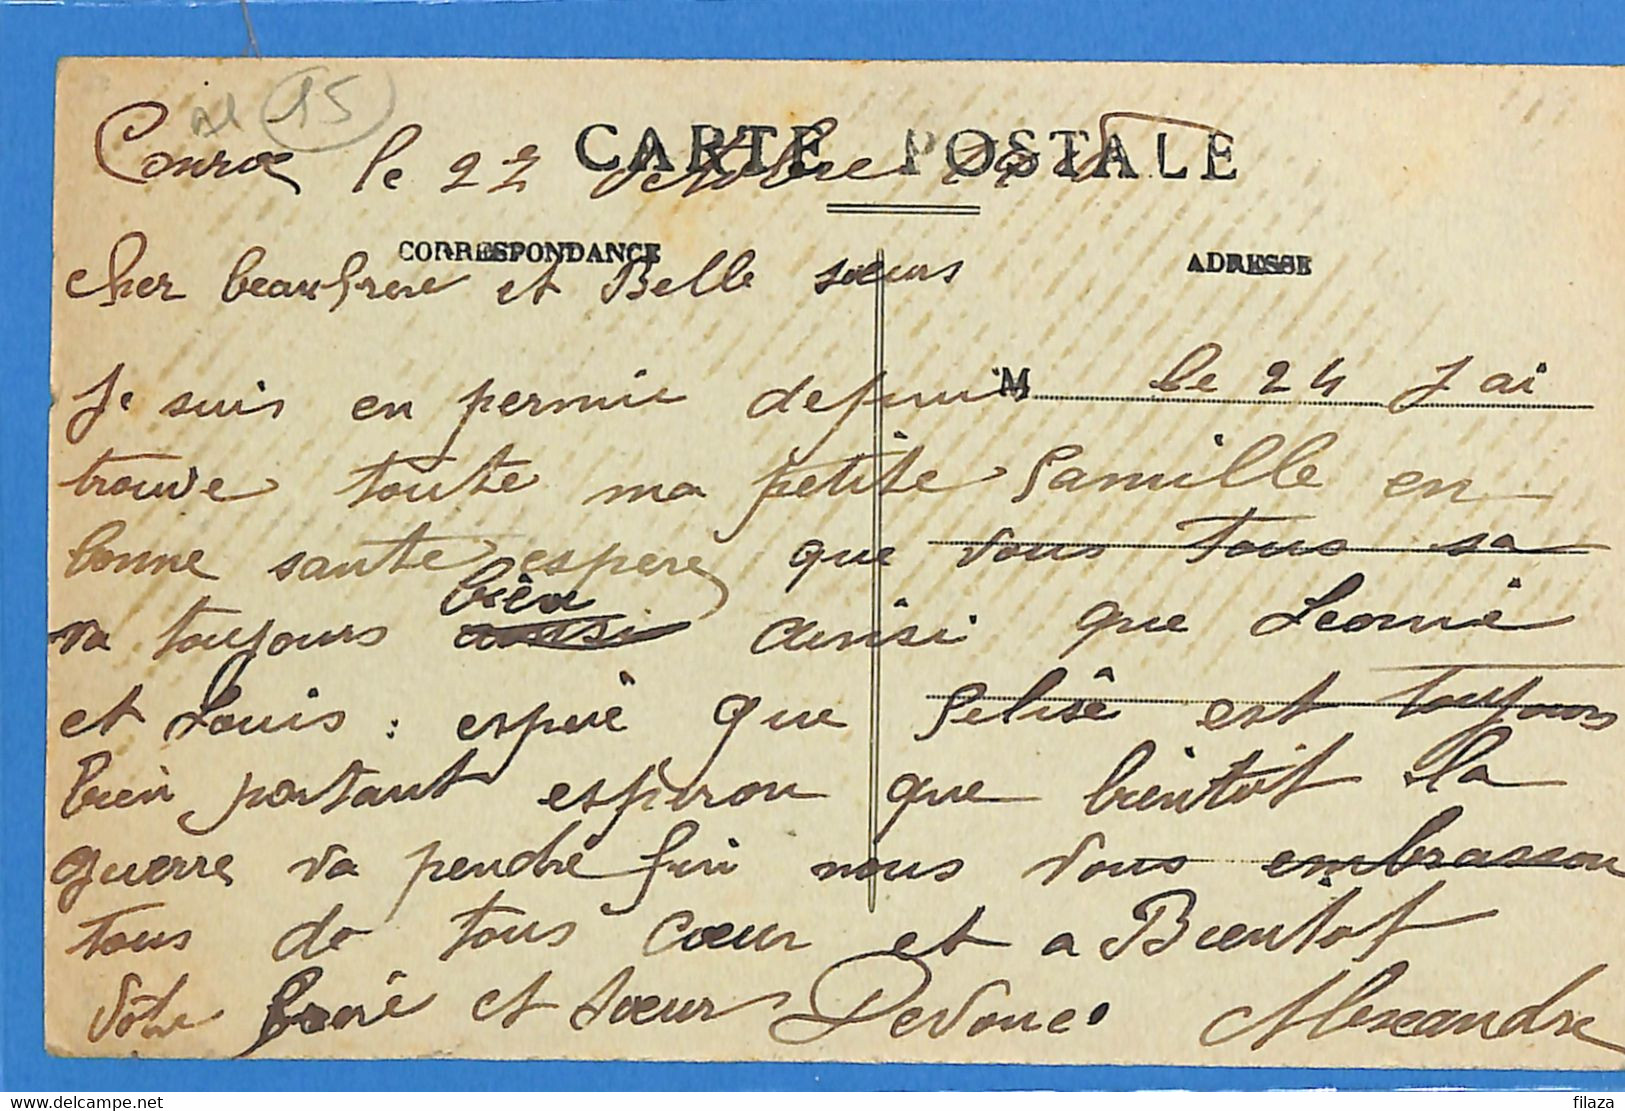 al 15
CARTE POSTALE
le 22 Octobre
CORRESPONDANCE
ADRESSE
Cher beaufrere et Belle sœurs
Je suis en permie depuis M le 24 J ai
trouve toute ma petite famille en
bonne sante espere que vous tous sa
va toujours bien ainsi que Leonie
et Louis : espere que felise est toujours
bien portant esperon que bientot la
guerre va pendre fin nous vous embrasson
tous de tous cœur et a Bientot
Votre frere et sœur Devoue. Alexandre
filaza